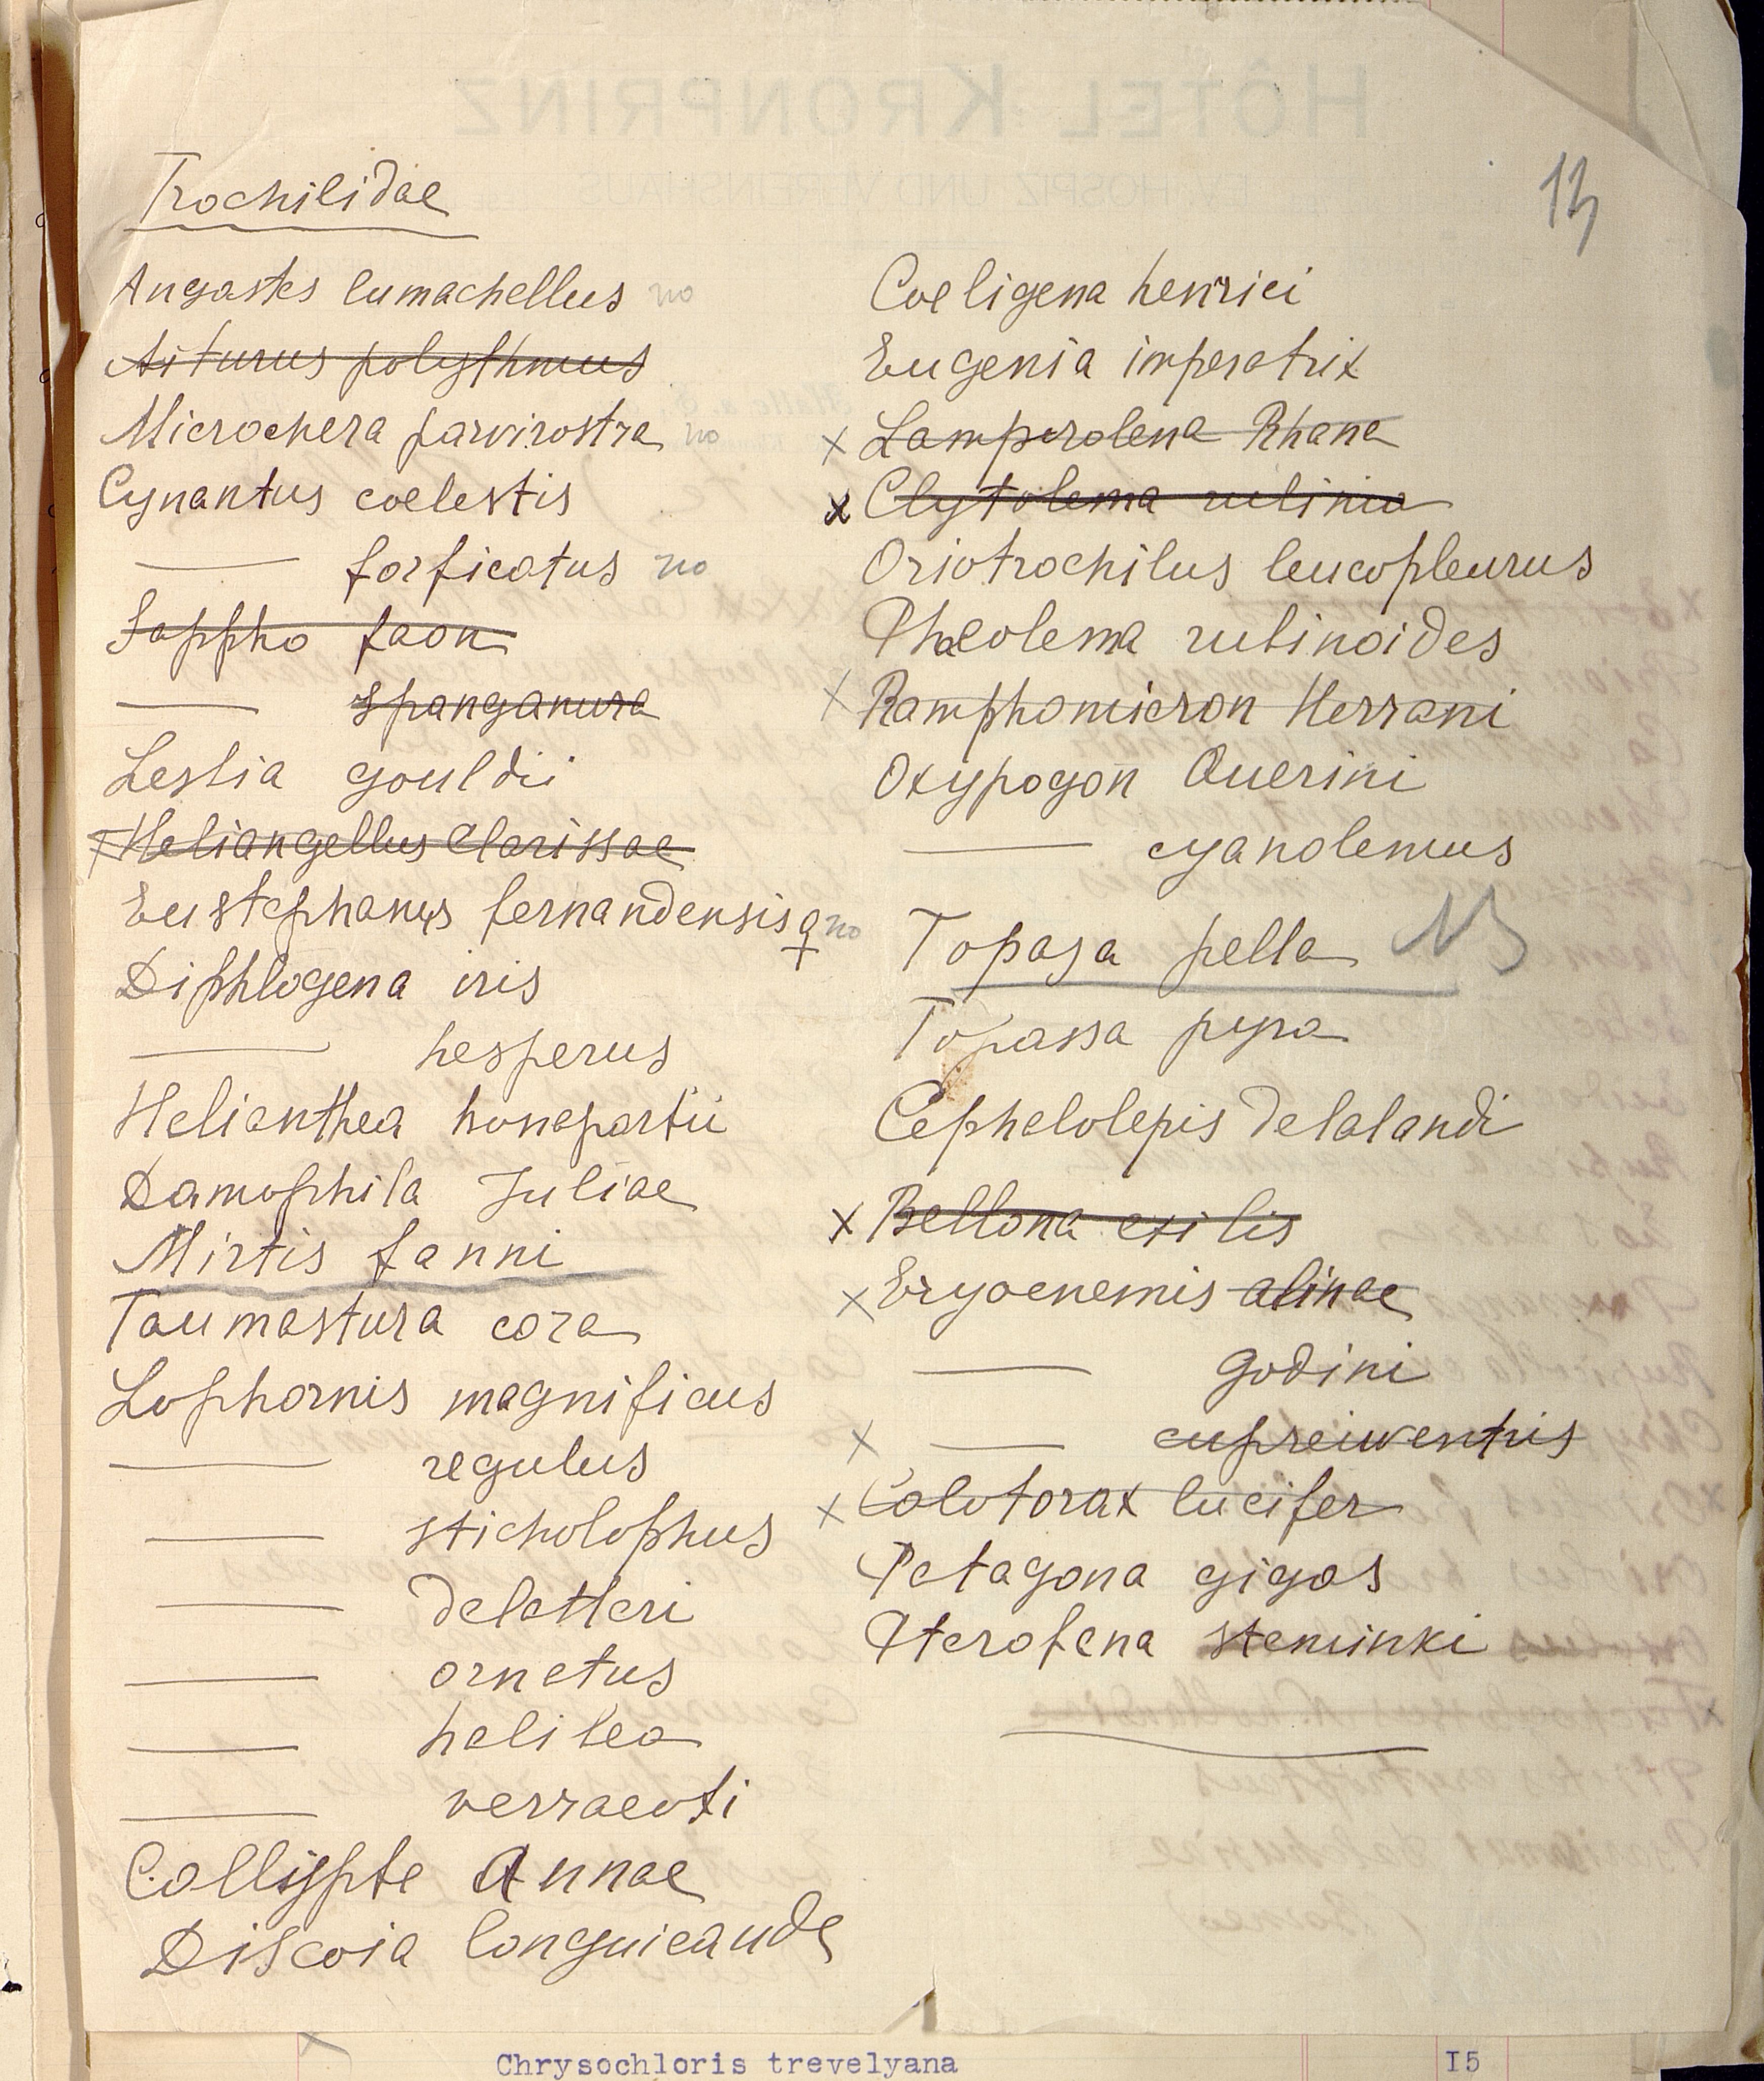 HÔTEL KRONPRINZ
13
Trochilidae
Angastes lumachellus no
Aiturus polythmus
Microchera parvirostra no
Cynantus coelestis
—— forficatus no
Sappho faon
—— spanganura
Lesbia gouldii
x Heliangellus Clarissae
Eustephanus fernandensis ♀ no
Diphlogena iris
—— hesperus
Helianthea bonapartii
Damophila Juliae
Mirtis fanni
Taumastura cora
Lophornis magnificus
—— regulus
—— sticholophus
—— delatteri
—— ornatus
—— helilea
—— verraeoti
Callypte Annae
Discoia longuicauda
Coeligena henrici
Eugenia imperatrix
x Lamprolena Rhana
x Clytolema rubinia
Oriotrochilus leucopleurus
Phaeolema rubinoides
x Ramphomicron Herrani
Oxypogon Querini
—— cyanolemus
Topasa pella 13
Topassa pyra
Cephalolepis delalandi
x Bellona exilis
x Eryocnemis alinae
—— godini
x —— cupreiventris
x Calotorax lucifer
Patagona gigas
Pterofana steminki
Chrysochloris trevelyana I5